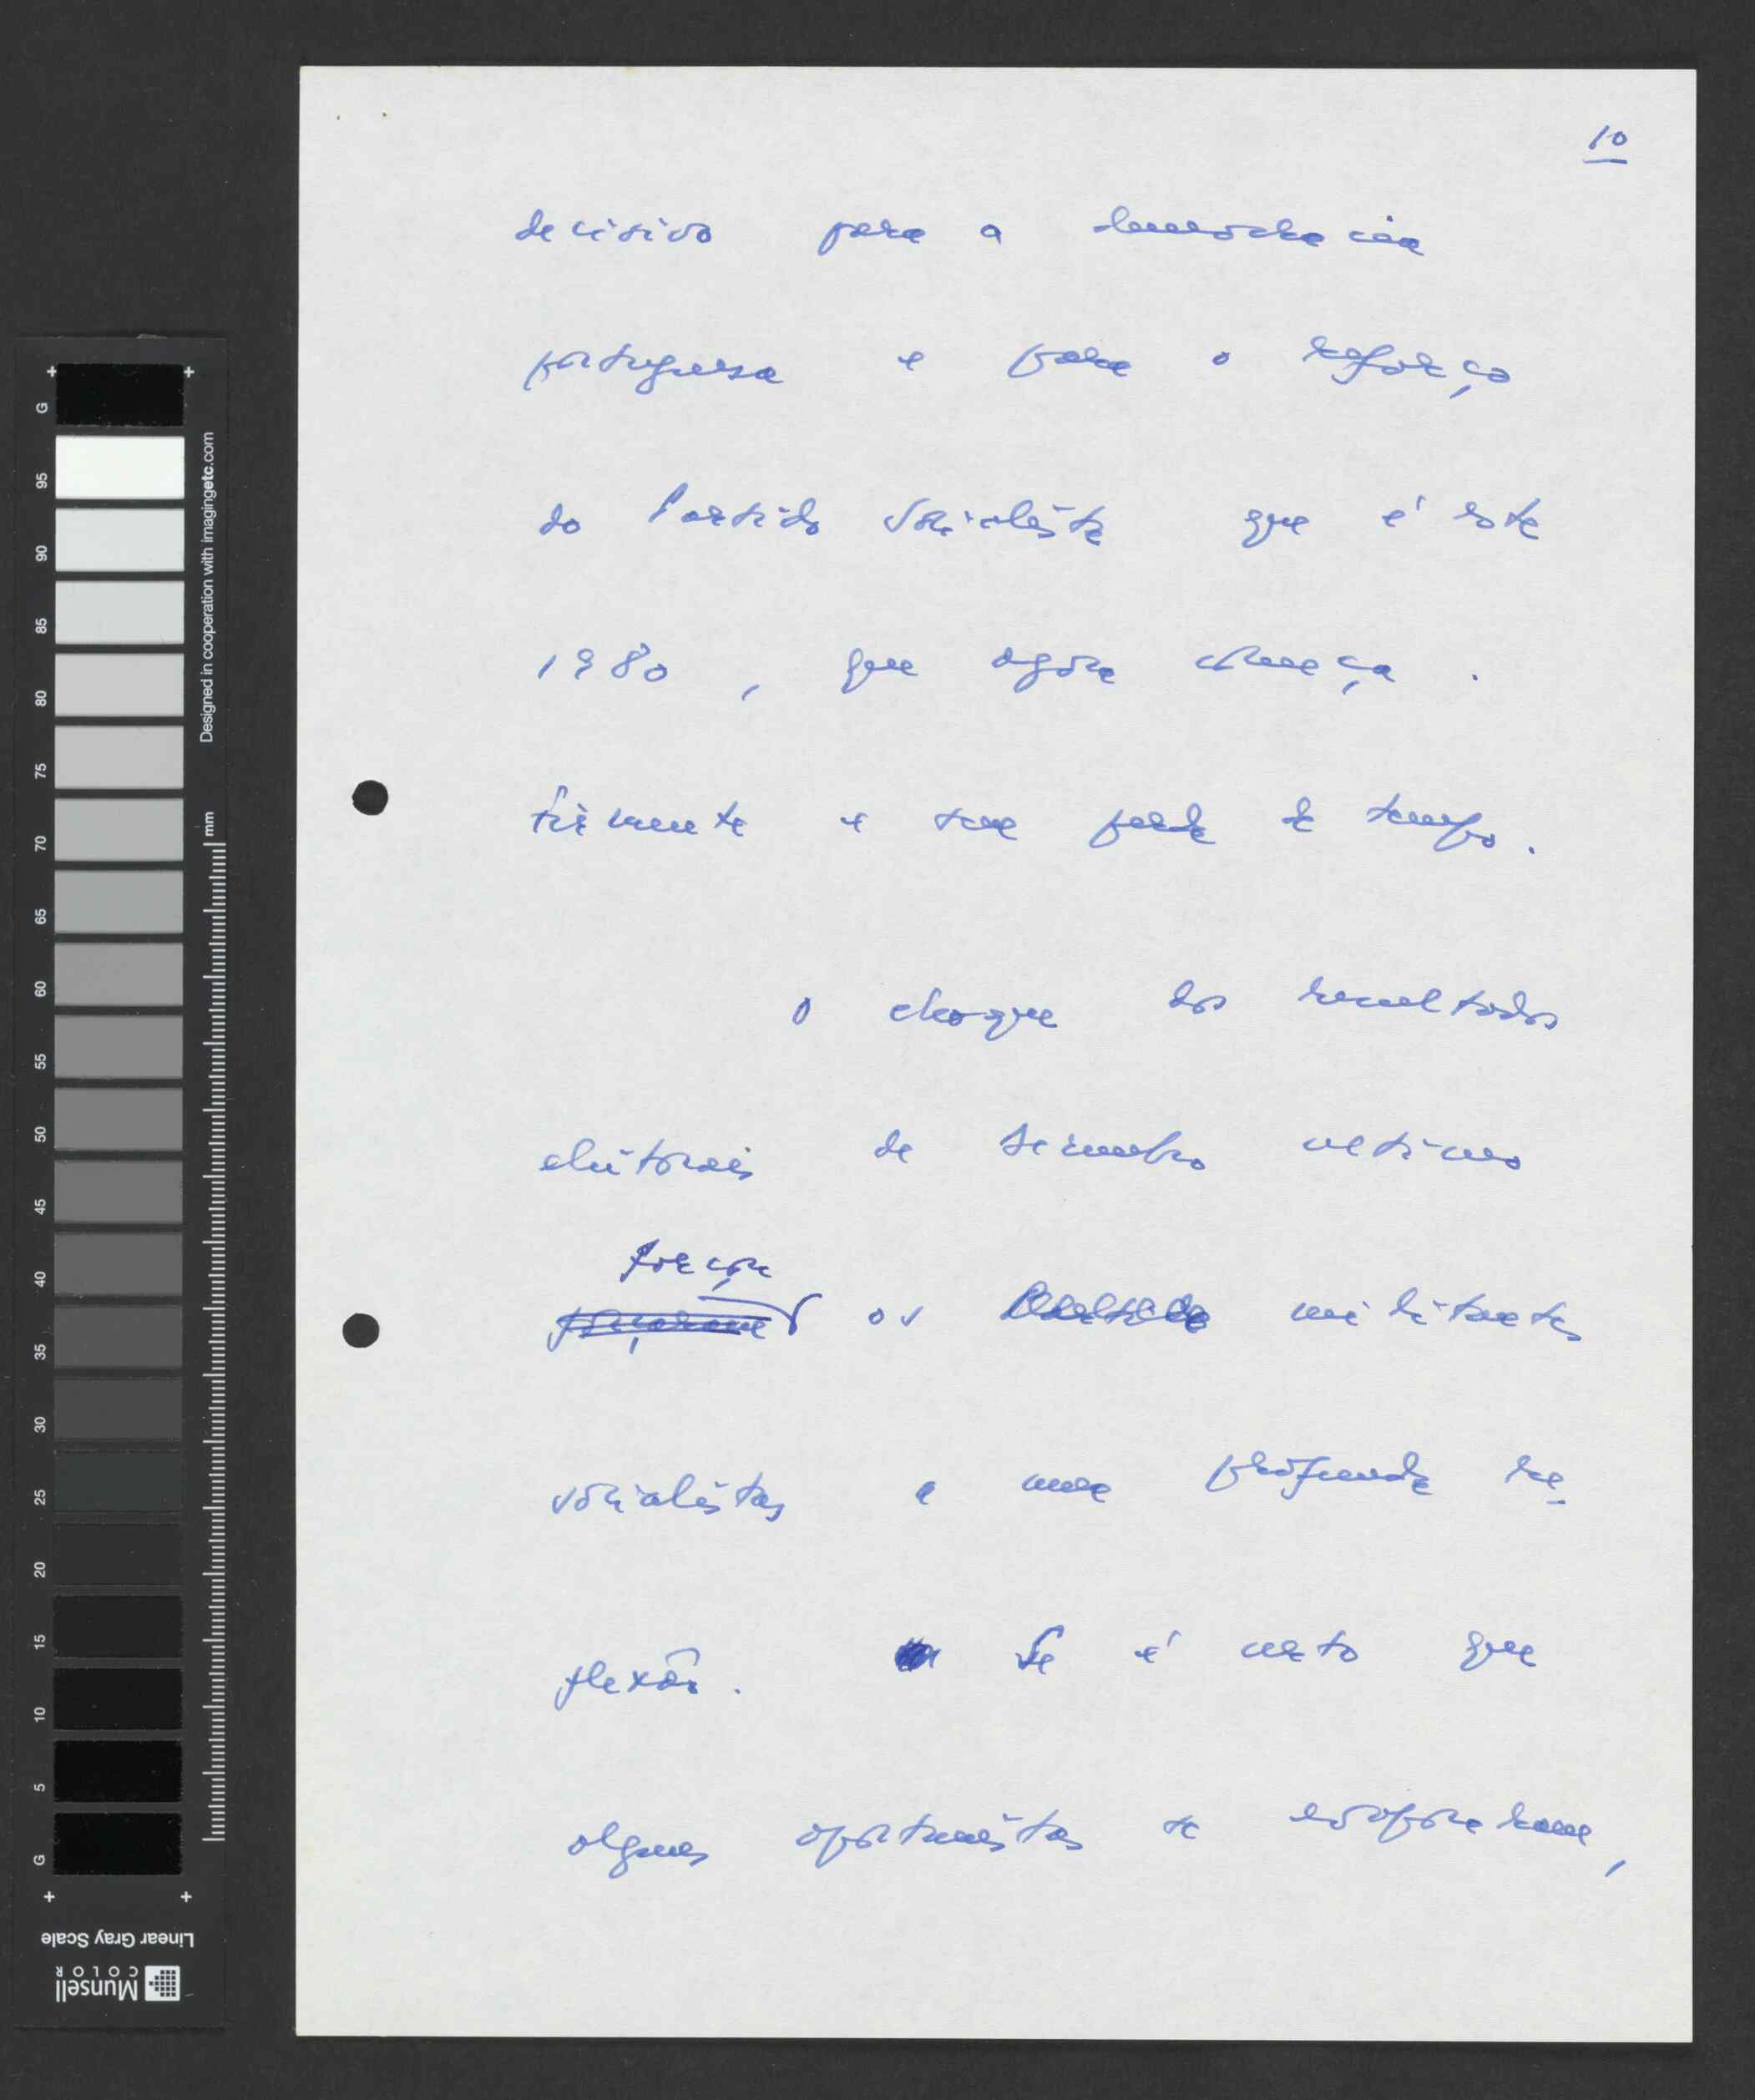 10
decisivo para a democracia
portuguesa e para o reforço
do Partido Socialista que é este
1980, que agora começa.
firmente e sem perda de tempo.
O choque dos resultados
eleitorais de Dezembro ultimo
forçou
forçaram os militantes
socialistas a uma profunda re-
flexão. Se é certo que
alguns oportunistas se
G
95
90
85
80
75
70
65
60
55
50
45
40
35
30
25
20
15
10
5
G
Designed in cooperation with imagingetc.com
mm
Linear Gray Scale
Munsell
COLOR